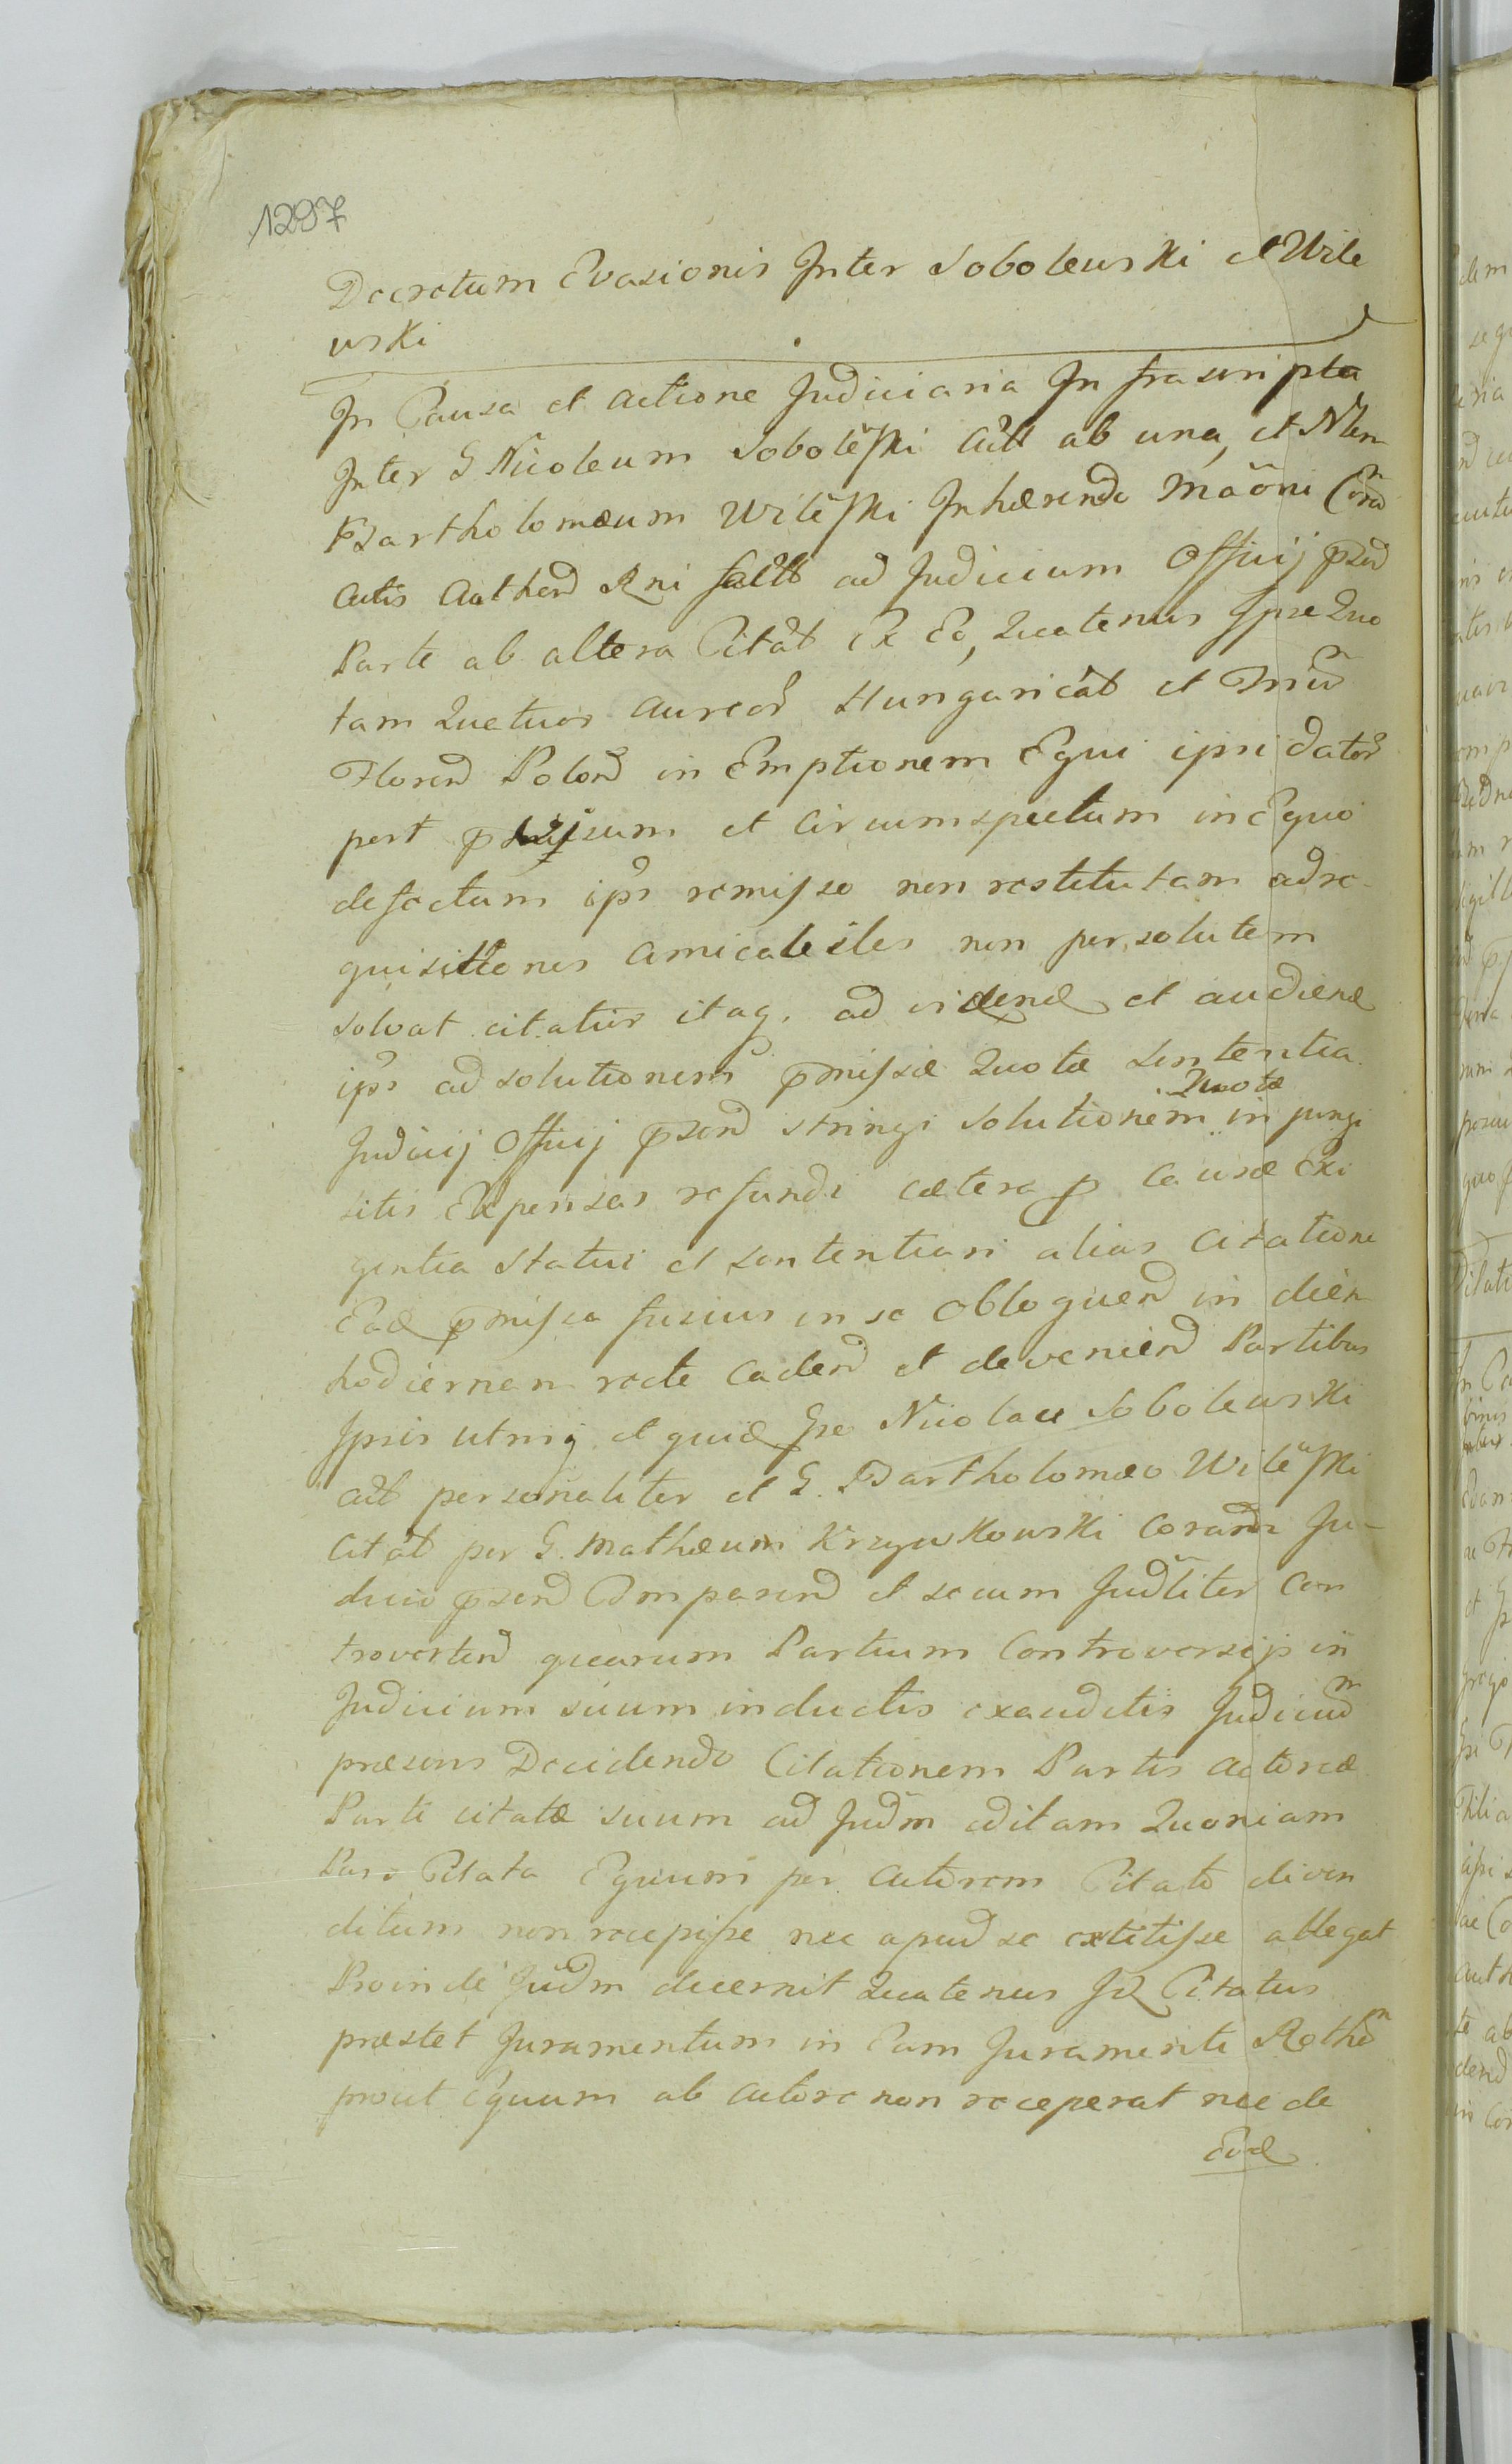 1297
Decretum Evasionis Inter Sobolewski et Wile
wski
In Causa et actione Judiciaria Infrascripta
Inter G Nicoleum Sobolewski act ab una, et Nlem
Bartholomæum Wilewski Inhærendo Mãoni Cond
actis Authend Rni fact ad Judicium Officij pñd
Parte ab altera Citat Ex Eo, Quatenus Ipse Quo
tam Quatuor aureor Hungaricat et Trium
Floren Polon in Emptionem Equi ipsi dator
post visum et circumspectum in Equo
defectum ips remisso non restitutam ad re-
quisitiones amicabiles non persolutem
solvat citatur itaq. ad videnđ et audienđ
ips ad solutionem p̃missæ Quotæ Sententia
Judicij Officij p̃send stringi solutionem Quotæ injungi
litis Expensas refundi cætera p causæ Exi
gentia statui et sententiari alias Citatione
Ead p̃missa fusius in se obloquend in diem
hodiernam recte cadend et deveniend Partibus
Ipsis utrinq et quid Gre Nicolae Sobolewski
act personaliter et G. Bartholomæo Wilewski
Citat per G. Mathæum Krzywkowski Coram Ju-
dicio p̃send Comparend et secum Judliter Con
trovertend quarum Partium Controversijs in
Judicium suum inductis exauditis Judicium
præsens Decidendo Citationem Partis actoreæ
Parti citatæ suum ad Judm editam Quoniam
Pars Citata Equum per actorem Citato diven
ditum non recepisse nec apud se extitisse allegat
Proinde Judm decernit Quatenus Id Citatus
præstet Juramentum in Eam Juramenti Rothm
prout Equum ab actore non receperat nec de
Eod